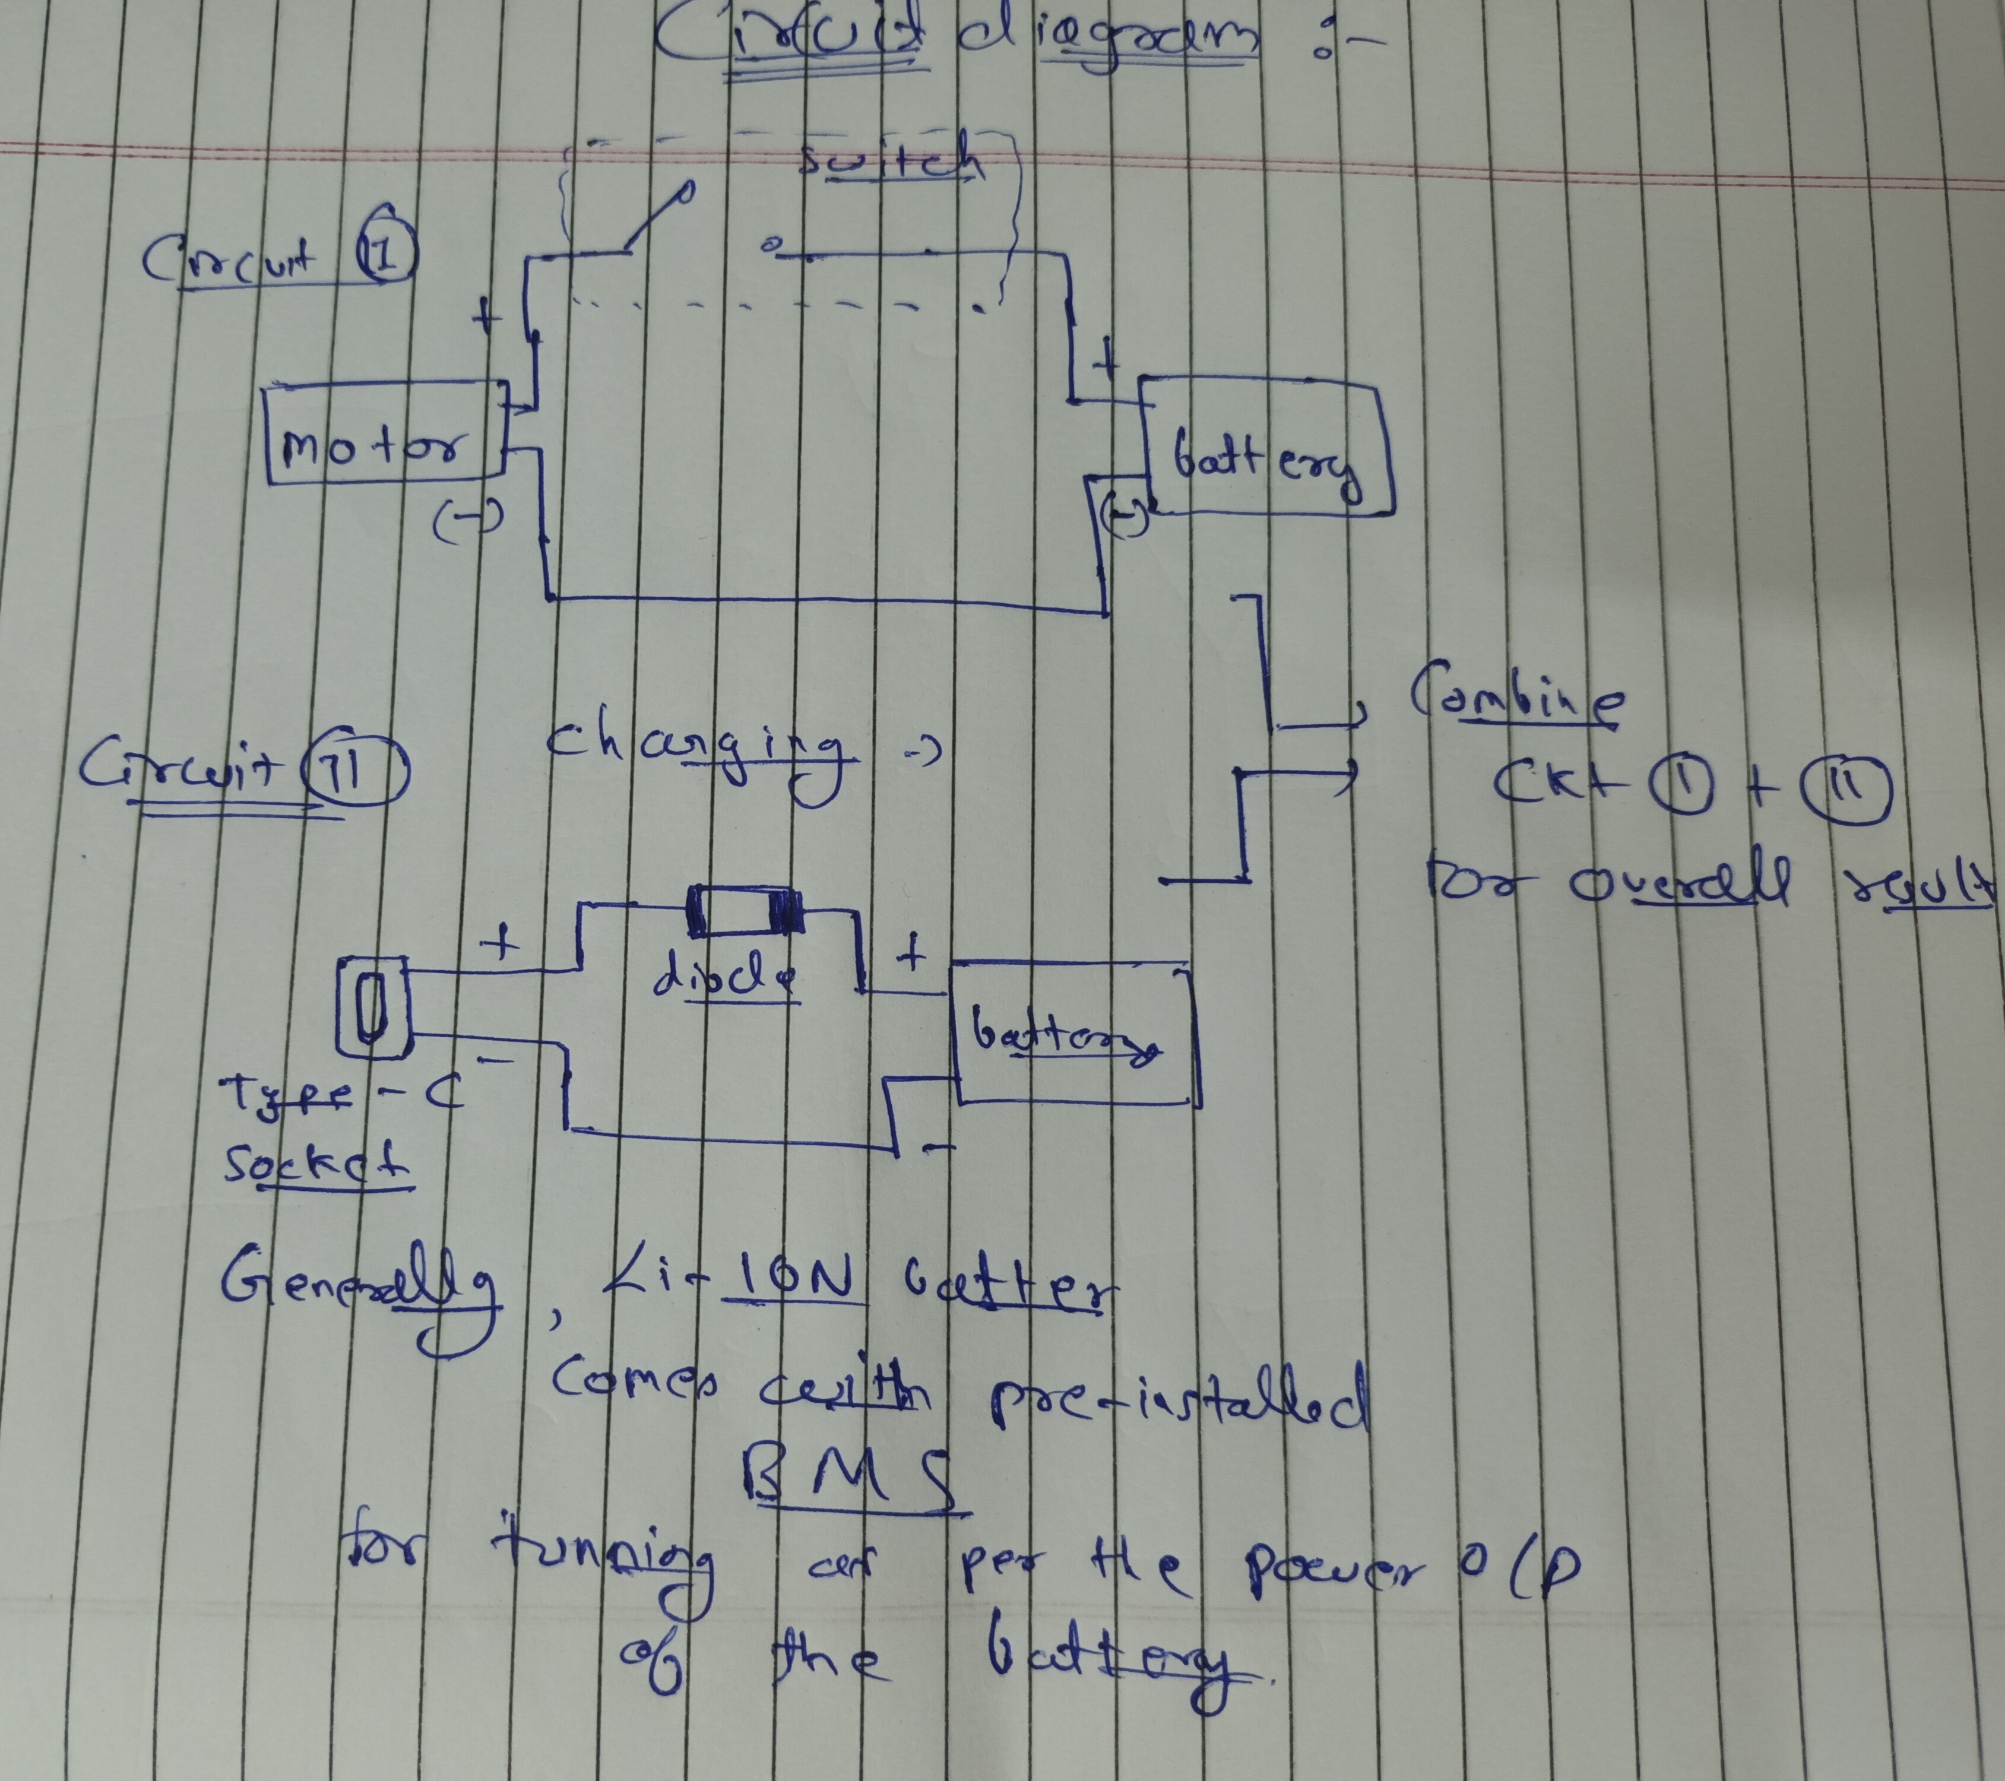 Circuit diagram :-
switch
Circuit I
+
+
motor
battery
(-)
(-)
Combine
Circuit II
charging →
CKt I + II
for overall result
+
diode
+
battery
-
Type - C
-
Socket
Generally, Li-ION batter
comes with pre-installed
BMS
for tunning as per the power O/P
of the battery.